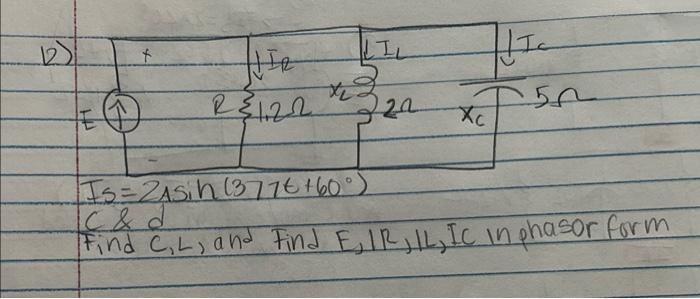 12)
+
↓IR
↓IL
↓IC
E
R
1.2Ω
XL
2Ω
XC
5Ω
-
Is=2Asin(377t+60°)
C & d
Find C, L, and Find E, IR, IL, IC in phasor form